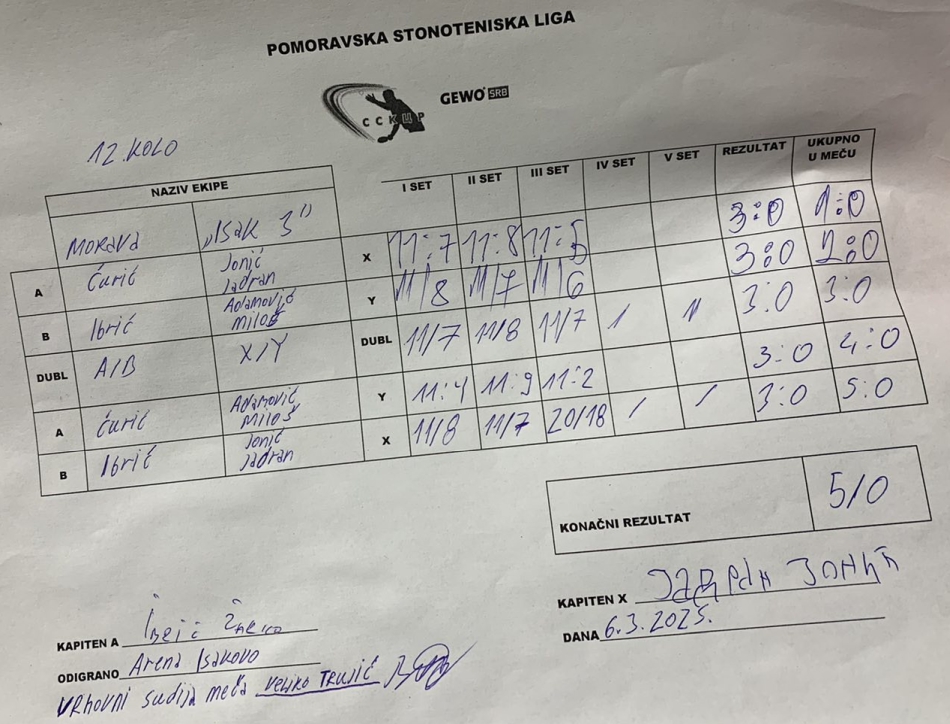 POMORAVSKA STONOTENISKA LIGA
ССКЦР GEWO SRB
12. KOLO
NAZIV EKIPE I SET II SET III SET IV SET V SET REZULTAT UKUPNO U MEČU
MORAVA „ISAK 3"
A Ćurić Jonić Jadran X 11:7 11:8 11:5 3:0 1:0
B Ibrić Adamović Miloš Y 11/8 11/7 11/6 3:0 2:0
DUBL A/B X/Y DUBL 11/7 11/8 11/7 / 3:0 3:0
A Ćurić Adamović Miloš Y 11:4 11:9 11:2 3:0 4:0
B Ibrić Jonić Jadran X 11/8 11/7 20/18 / / 3:0 5:0
KONAČNI REZULTAT 5/0
KAPITEN A
KAPITEN X
ODIGRANO Arena Isakovo
DANA 6.3.2025.
VRhovni sudija meča VELJKO TRUJIĆ